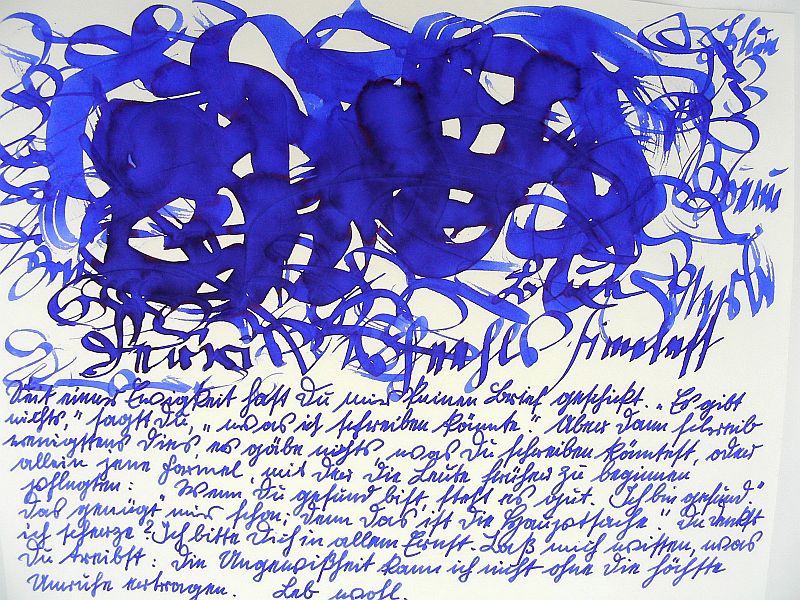 Seit einer Ewigkeit hast Du mir keinen Brief geschickt. „Es gibt
nichts," sagst Du, „was ich schreiben könnte." Aber dann schreib
wenigstens dies, es gäbe nichts, was Du schreiben könntest, oder
allein jene Formel, mit der die Leute früher zu beginnen
pflegten: „Wenn Du gesund bist, steht es gut. Ich bin gesund."
Das genügt mir schon; denn das ist die Hauptsache." Du denkst
ich scherze? Ich bitte Dich in allem Ernst. Laß mich wissen, was
Du treibst: die Ungewißheit kann ich nicht ohne die höchste
Unruhe ertragen. Leb wohl.